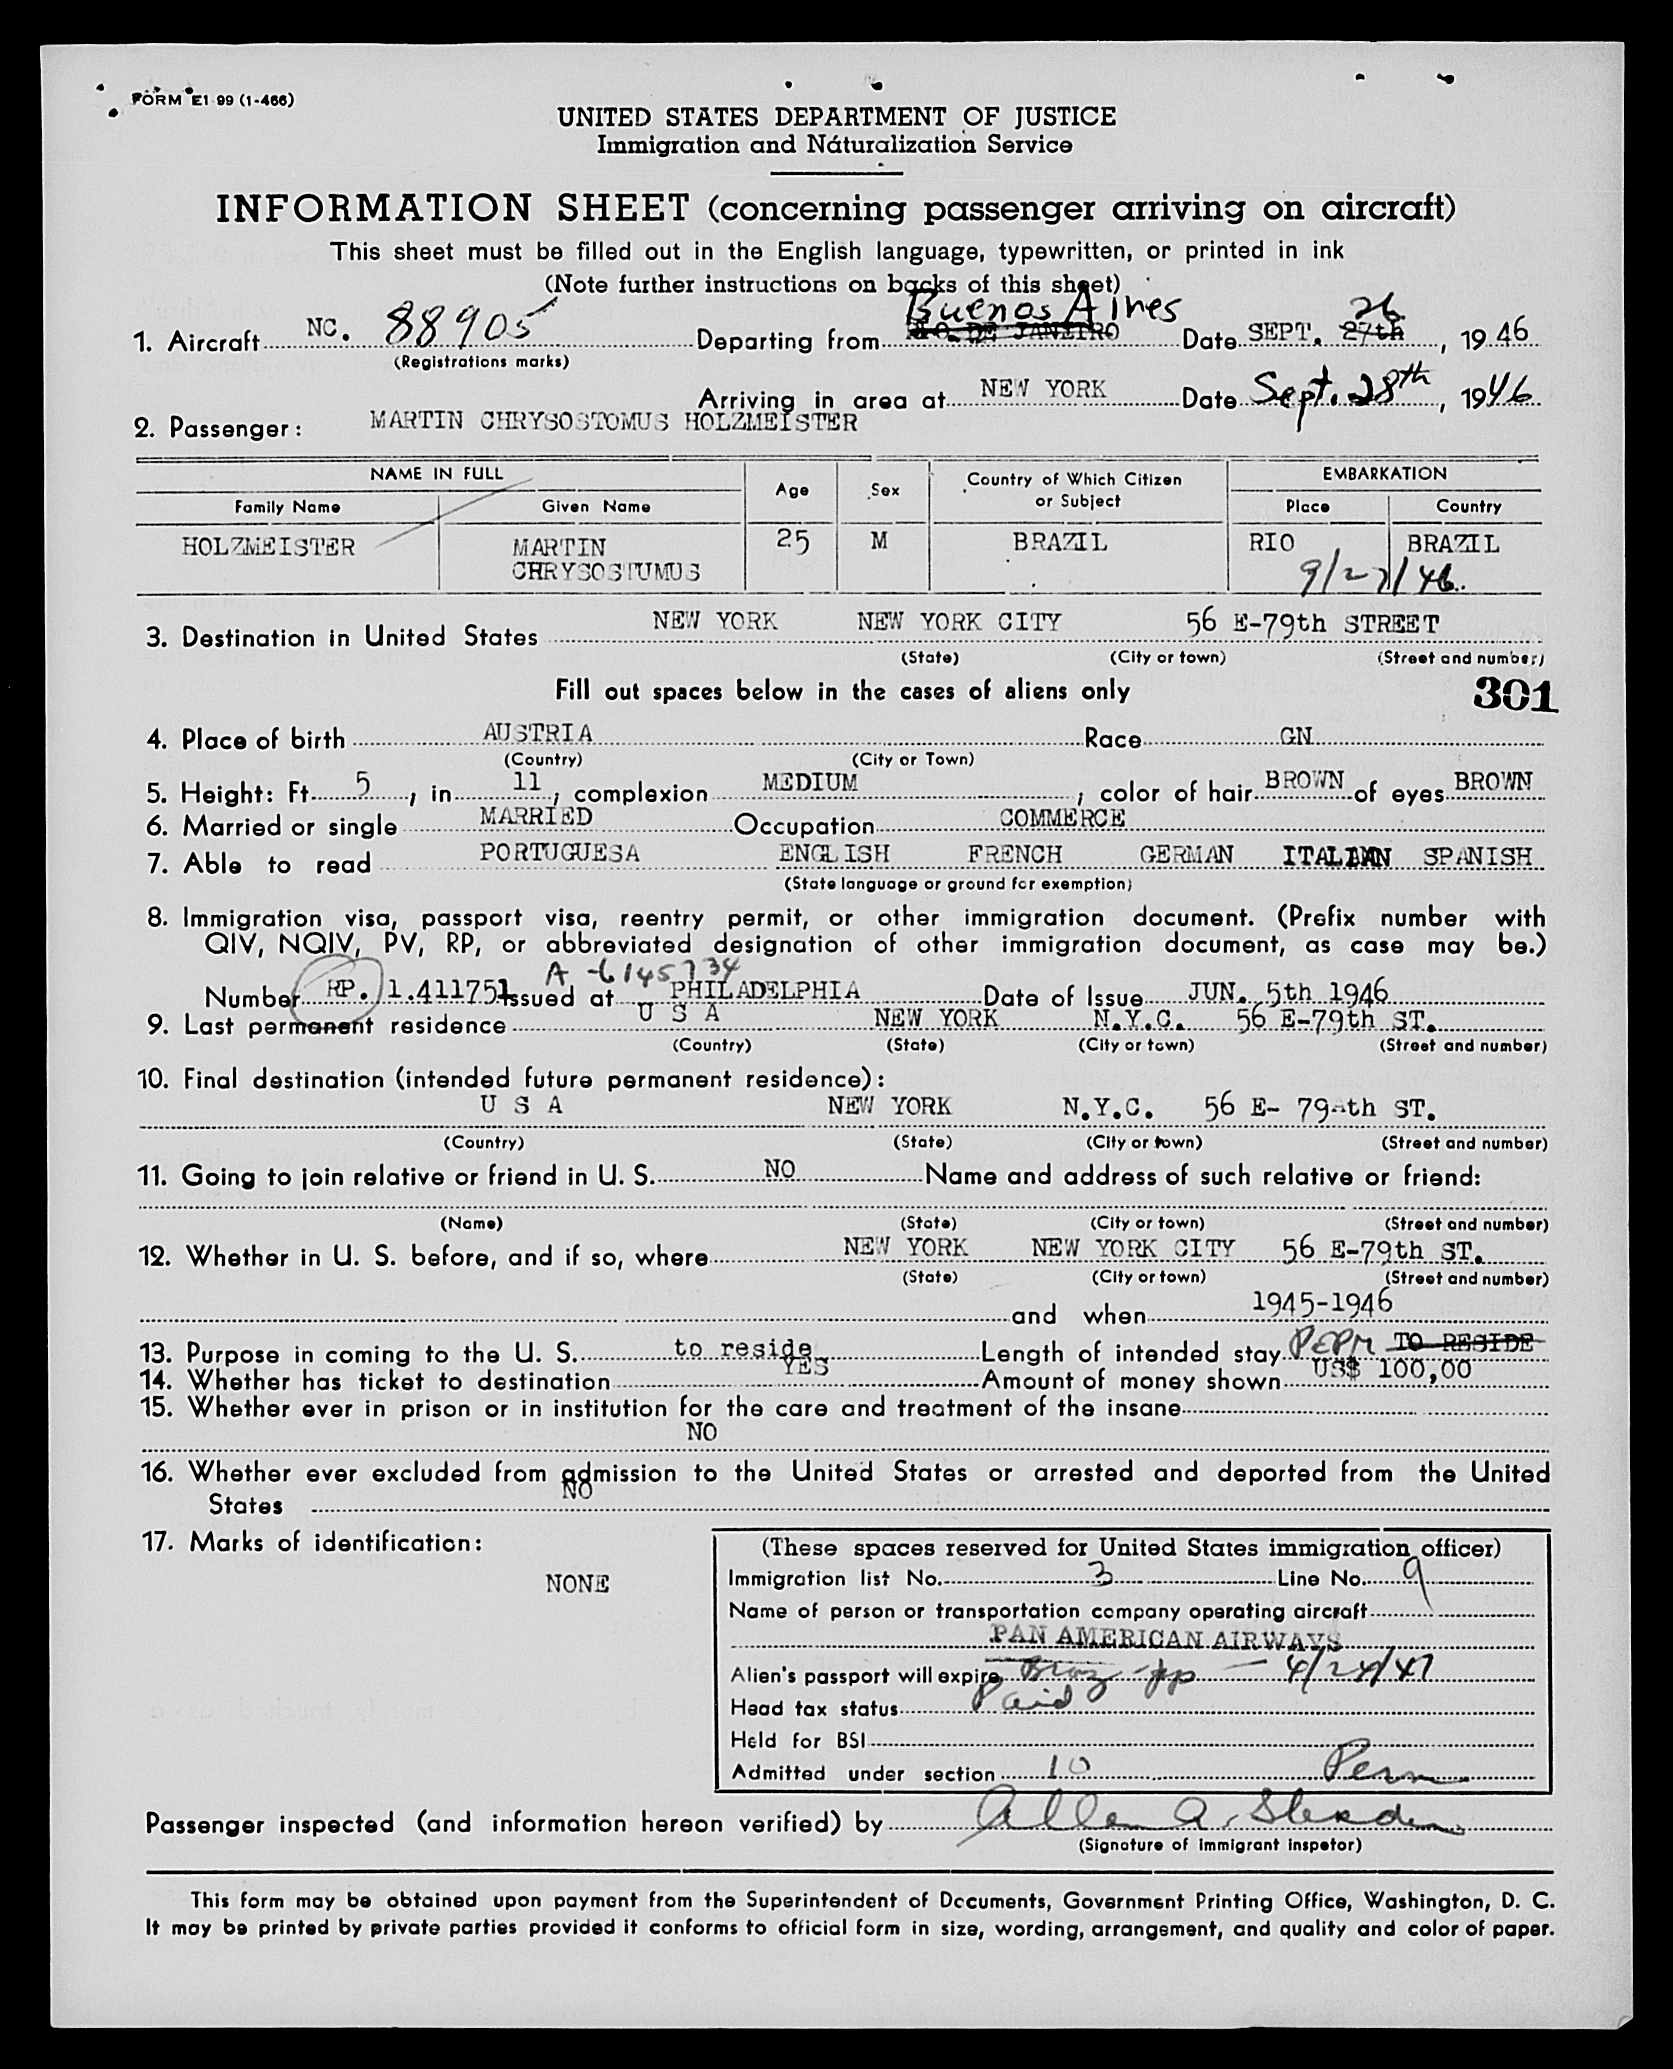 FORM E1 99 (1-466)
UNITED STATES DEPARTMENT OF JUSTICE
Immigration and Naturalization Service
INFORMATION SHEET (concerning passenger arriving on aircraft)
This sheet must be filled out in the English language, typewritten, or printed in ink
(Note further instructions on backs of this sheet)
1. Aircraft NC. 88905 Departing from RIO DE JANEIRO Buenos Aires Date SEPT. 27th 26, 1946
(Registrations marks)
Arriving in area at NEW YORK Date Sept. 28th, 1946
2. Passenger: MARTIN CHRYSOSTOMUS HOLZMEISTER
NAME IN FULL Age Sex Country of Which Citizen or Subject EMBARKATION
Family Name Given Name Place Country
HOLZMEISTER MARTIN 25 M BRAZIL RIO BRAZIL
CHRYSOSTUMUS 9/27/46.
3. Destination in United States NEW YORK NEW YORK CITY 56 E-79th STREET
(State) (City or town) (Street and number)
Fill out spaces below in the cases of aliens only 301
4. Place of birth AUSTRIA Race GN
(Country) (City or Town)
5. Height: Ft. 5, in. 11, complexion MEDIUM; color of hair BROWN of eyes BROWN
6. Married or single MARRIED Occupation COMMERCE
7. Able to read PORTUGUESA ENGLISH FRENCH GERMAN ITALIAN SPANISH
(State language or ground for exemption)
8. Immigration visa, passport visa, reentry permit, or other immigration document. (Prefix number with
QIV, NQIV, PV, RP, or abbreviated designation of other immigration document, as case may be.)
A-6145734
Number RP. 1.411751 Issued at PHILADELPHIA Date of Issue JUN. 5th 1946
9. Last permanent residence U S A NEW YORK N.Y.C. 56 E-79th ST.
(Country) (State) (City or town) (Street and number)
10. Final destination (intended future permanent residence):
U S A NEW YORK N.Y.C. 56 E- 79-th ST.
(Country) (State) (City or town) (Street and number)
11. Going to join relative or friend in U. S. NO Name and address of such relative or friend:
(Name) (State) (City or town) (Street and number)
12. Whether in U. S. before, and if so, where NEW YORK NEW YORK CITY 56 E-79th ST.
(State) (City or town) (Street and number)
and when 1945-1946
13. Purpose in coming to the U. S. to reside Length of intended stay PERM TO RESIDE
14. Whether has ticket to destination YES Amount of money shown US$ 100,00
15. Whether ever in prison or in institution for the care and treatment of the insane
NO
16. Whether ever excluded from admission to the United States or arrested and deported from the United
States NO
17. Marks of identification:
NONE
(These spaces reserved for United States immigration officer)
Immigration list No. 3 Line No. 9
Name of person or transportation company operating aircraft
PAN AMERICAN AIRWAYS
Alien's passport will expire Braz - pp - 4/24/47
Head tax status Paid
Held for BSI
Admitted under section 10 Perm
Passenger inspected (and information hereon verified) by Allen A.
(Signature of immigrant inspetor)
This form may be obtained upon payment from the Superintendent of Documents, Government Printing Office, Washington, D. C.
It may be printed by private parties provided it conforms to official form in size, wording, arrangement, and quality and color of paper.